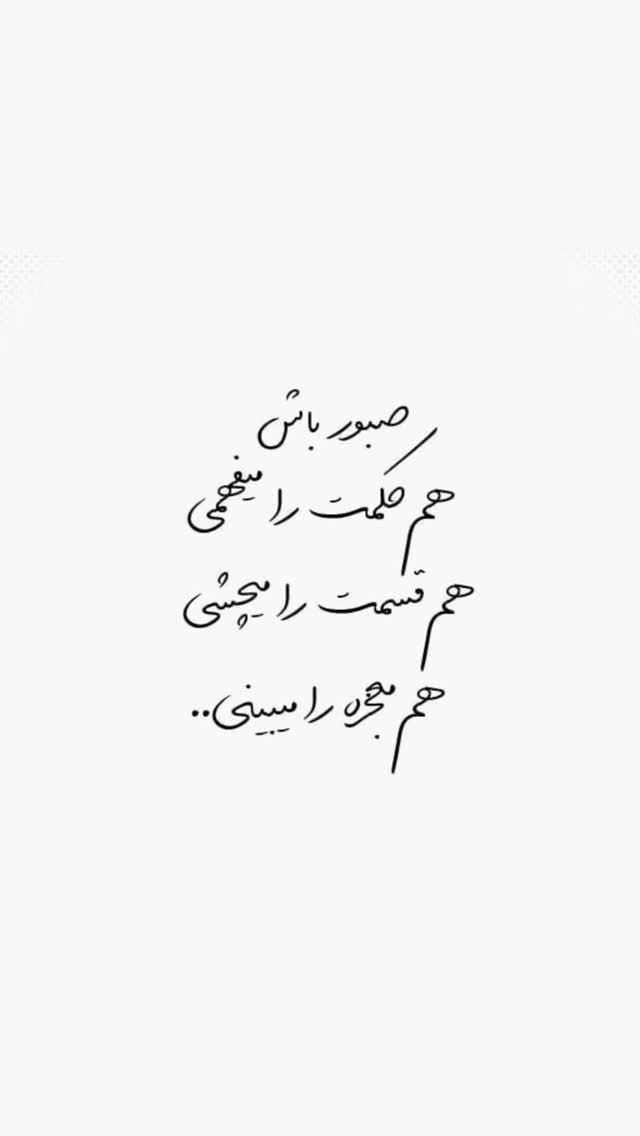 صبور باش
هم حکمت را میفهمی
هم قسمت را میچشی
هم معجزه را میبینی..